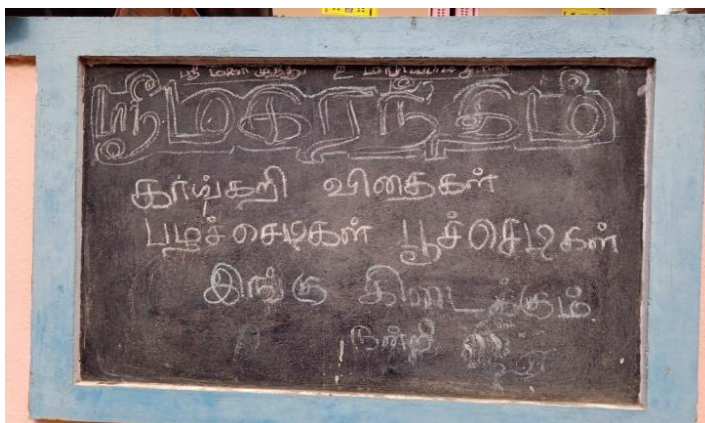 ஸ்ரீ
ஸ்ரீமகரந்தம்
காய்கறி விதைகள்
பழச்செடிகள் பூச்செடிகள்
இங்கு கிடைக்கும்
நன்றி